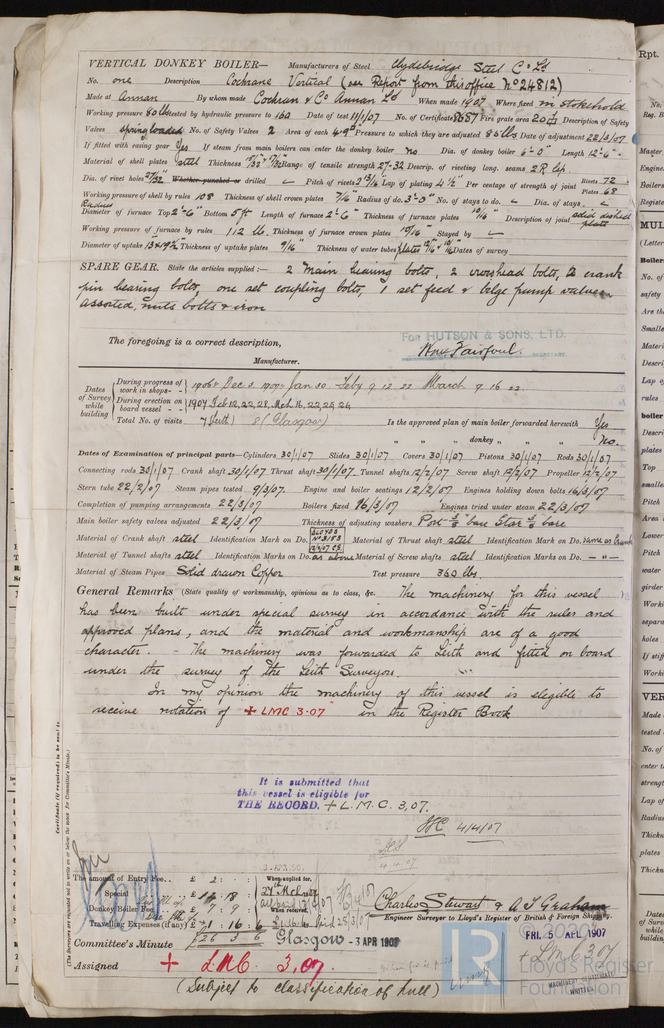 VERTICAL DONKEY BOILER— Manufacturers of Steel Clydebridge Steel Co Ld
No. one Description Cochrane Vertical (see Report from this office No 24812)
Made at Annan By whom made Cochran & Co Annan Ld When made 1907 Where fixed in stokehold
Working pressure 80 lbs tested by hydraulic pressure to 160 Date of test 11/1/07 No. of Certificate 8687 Fire grate area 20 Description of Safety
Valves spring loaded No. of Safety Valves 2 Area of each 4.9" Pressure to which they are adjusted 85 lbs Date of adjustment 22/3/07
If fitted with easing gear Yes If steam from main boilers can enter the donkey boiler no Dia. of donkey boiler 6'-0" Length 12'-6"
Material of shell plates steel Thickness Range of tensile strength 27-32 Descrip. of riveting long. seams 2 R lap.
Dia. of rivet holes 27/32" Whether punched or drilled Pitch of rivets 2 13/16" Lap of plating 4 1/2" Per centage of strength of joint Rivets 72 Plates 68
Working pressure of shell by rules 108 Thickness of shell crown plates 7/16" Radius of do. 3'-0" No. of stays to do. Dia. of stays.
Radius
Diameter of furnace Top 2'-6" Bottom 5 ft Length of furnace 2'-6" Thickness of furnace plates 10/16" Description of joint solid dished plate
Working pressure of furnace by rules 112 lb. Thickness of furnace crown plates 10/16" Stayed by
Diameter of uptake 13 x 19 1/2 Thickness of uptake plates 9/16" Thickness of water tubes plates Dates of survey
SPARE GEAR. State the articles supplied:— 2 main bearing bolts, 2 crosshead bolts, 2 crank
pin bearing bolts, one set coupling bolts, 1 set feed & bilge pump valves
assorted, nuts bolts & iron
The foregoing is a correct description,
For HUTSON & SONS, LTD.
Wm Fairfoul. SECRETARY.
Manufacturer.
Dates of Survey while building
During progress of work in shops - - 1906 Dec 5 1907 Jan 30 Feby 9 12 22 March 9 16 22
During erection on board vessel - - 1907 Feb 12, 22, 28, Mch 16, 22, 25, 26
Total No. of visits 7 (Leith) 8 (Glasgow) Is the approved plan of main boiler forwarded herewith Yes
" " " donkey " " " no.
Dates of Examination of principal parts—Cylinders 30/1/07 Slides 30/1/07 Covers 30/1/07 Pistons 30/1/07 Rods 30/1/07
Connecting rods 30/1/07 Crank shaft 30/1/07 Thrust shaft 30/1/07 Tunnel shafts 12/2/07 Screw shaft 12/2/07 Propeller 12/2/07
Stern tube 22/2/07 Steam pipes tested 9/3/07. Engine and boiler seatings 12/2/07 Engines holding down bolts 16/3/07
Completion of pumping arrangements 22/3/07 Boilers fixed 16/3/07 Engines tried under steam 22/3/07
Main boiler safety valves adjusted 22/3/07 Thickness of adjusting washers Port 3/8 bare Star 3/8 bare
Material of Crank shaft steel Identification Mark on Do. LLOYDS No 3153 Material of Thrust shaft steel Identification Mark on Do. same as Crank
Material of Tunnel shafts steel Identification Marks on Do. as above Material of Screw shafts steel Identification Marks on Do. — " —
Material of Steam Pipes Solid drawn Copper Test pressure 360 lbs.
General Remarks (State quality of workmanship, opinions as to class, &c. The machinery for this vessel
has been built under special survey in accordance with the rules and
approved plans, and the material and workmanship are of a good
character. - The machinery was forwarded to Leith and fitted on board
under the survey of the Leith Surveyors.
In my opinion the machinery of this vessel is eligible to
receive notation of + LMC 3.07 in the Register Book
It is submitted that
this vessel is eligible for
THE RECORD. + L.M.C. 3,07.
4/4/07
The amount of Entry Fee .. £ 2 : :
When applied for,
Special £
27 Mch 1907
Donkey Boiler Fee £
When received,
Travelling Expenses (if any) £
Charles Stewart & A J Graham
Engineer Surveyor to Lloyd's Register of British & Foreign Shipping.
Committee's Minute Glasgow - 3 APR 1907
FRI. 5 APL 1907
+ LMC 3.07
Assigned + LMC 3,07.
(Subject to classification of hull)
© 2020
LR
Lloyd's Register
Foundation
MACHINERY CERTIFICATE
WRITTEN.
Certificate (if required) to be sent to
(The Surveyors are requested not to write on or below the space for Committee's Minute.)
Rpt.